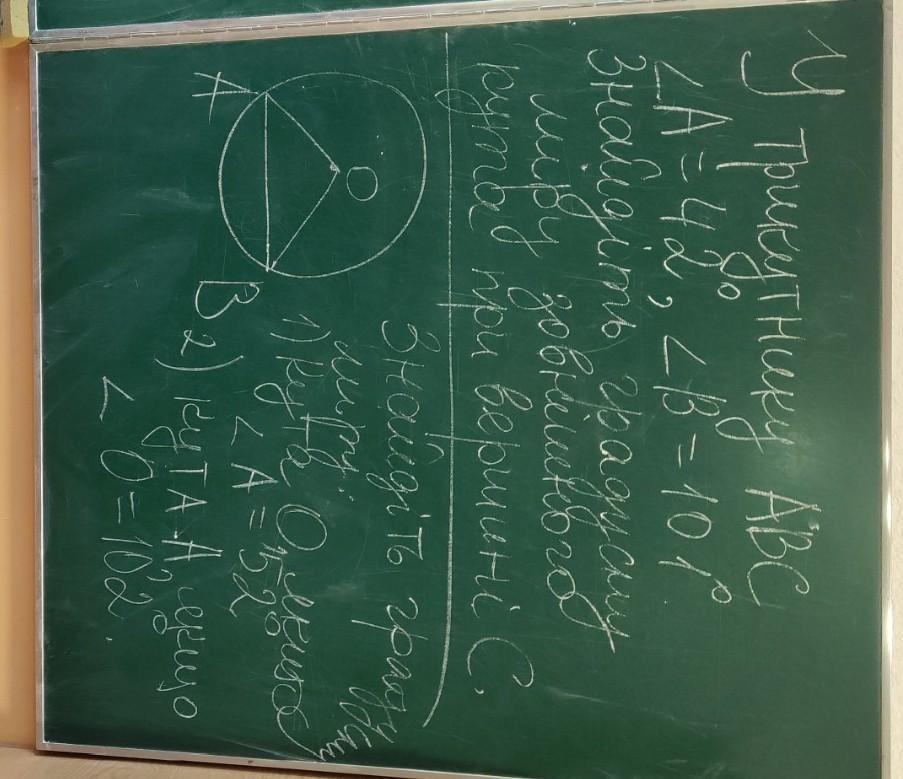 У трикутнику ABC
∠A = 42°, ∠B = 101°
Знайдіть градусну
міру зовнішнього
кута при вершині C.
O
A
B
Знайдіть градусну
міру:
1) кута O якщо
∠A = 52°
2) кута A якщо
∠O = 102°.